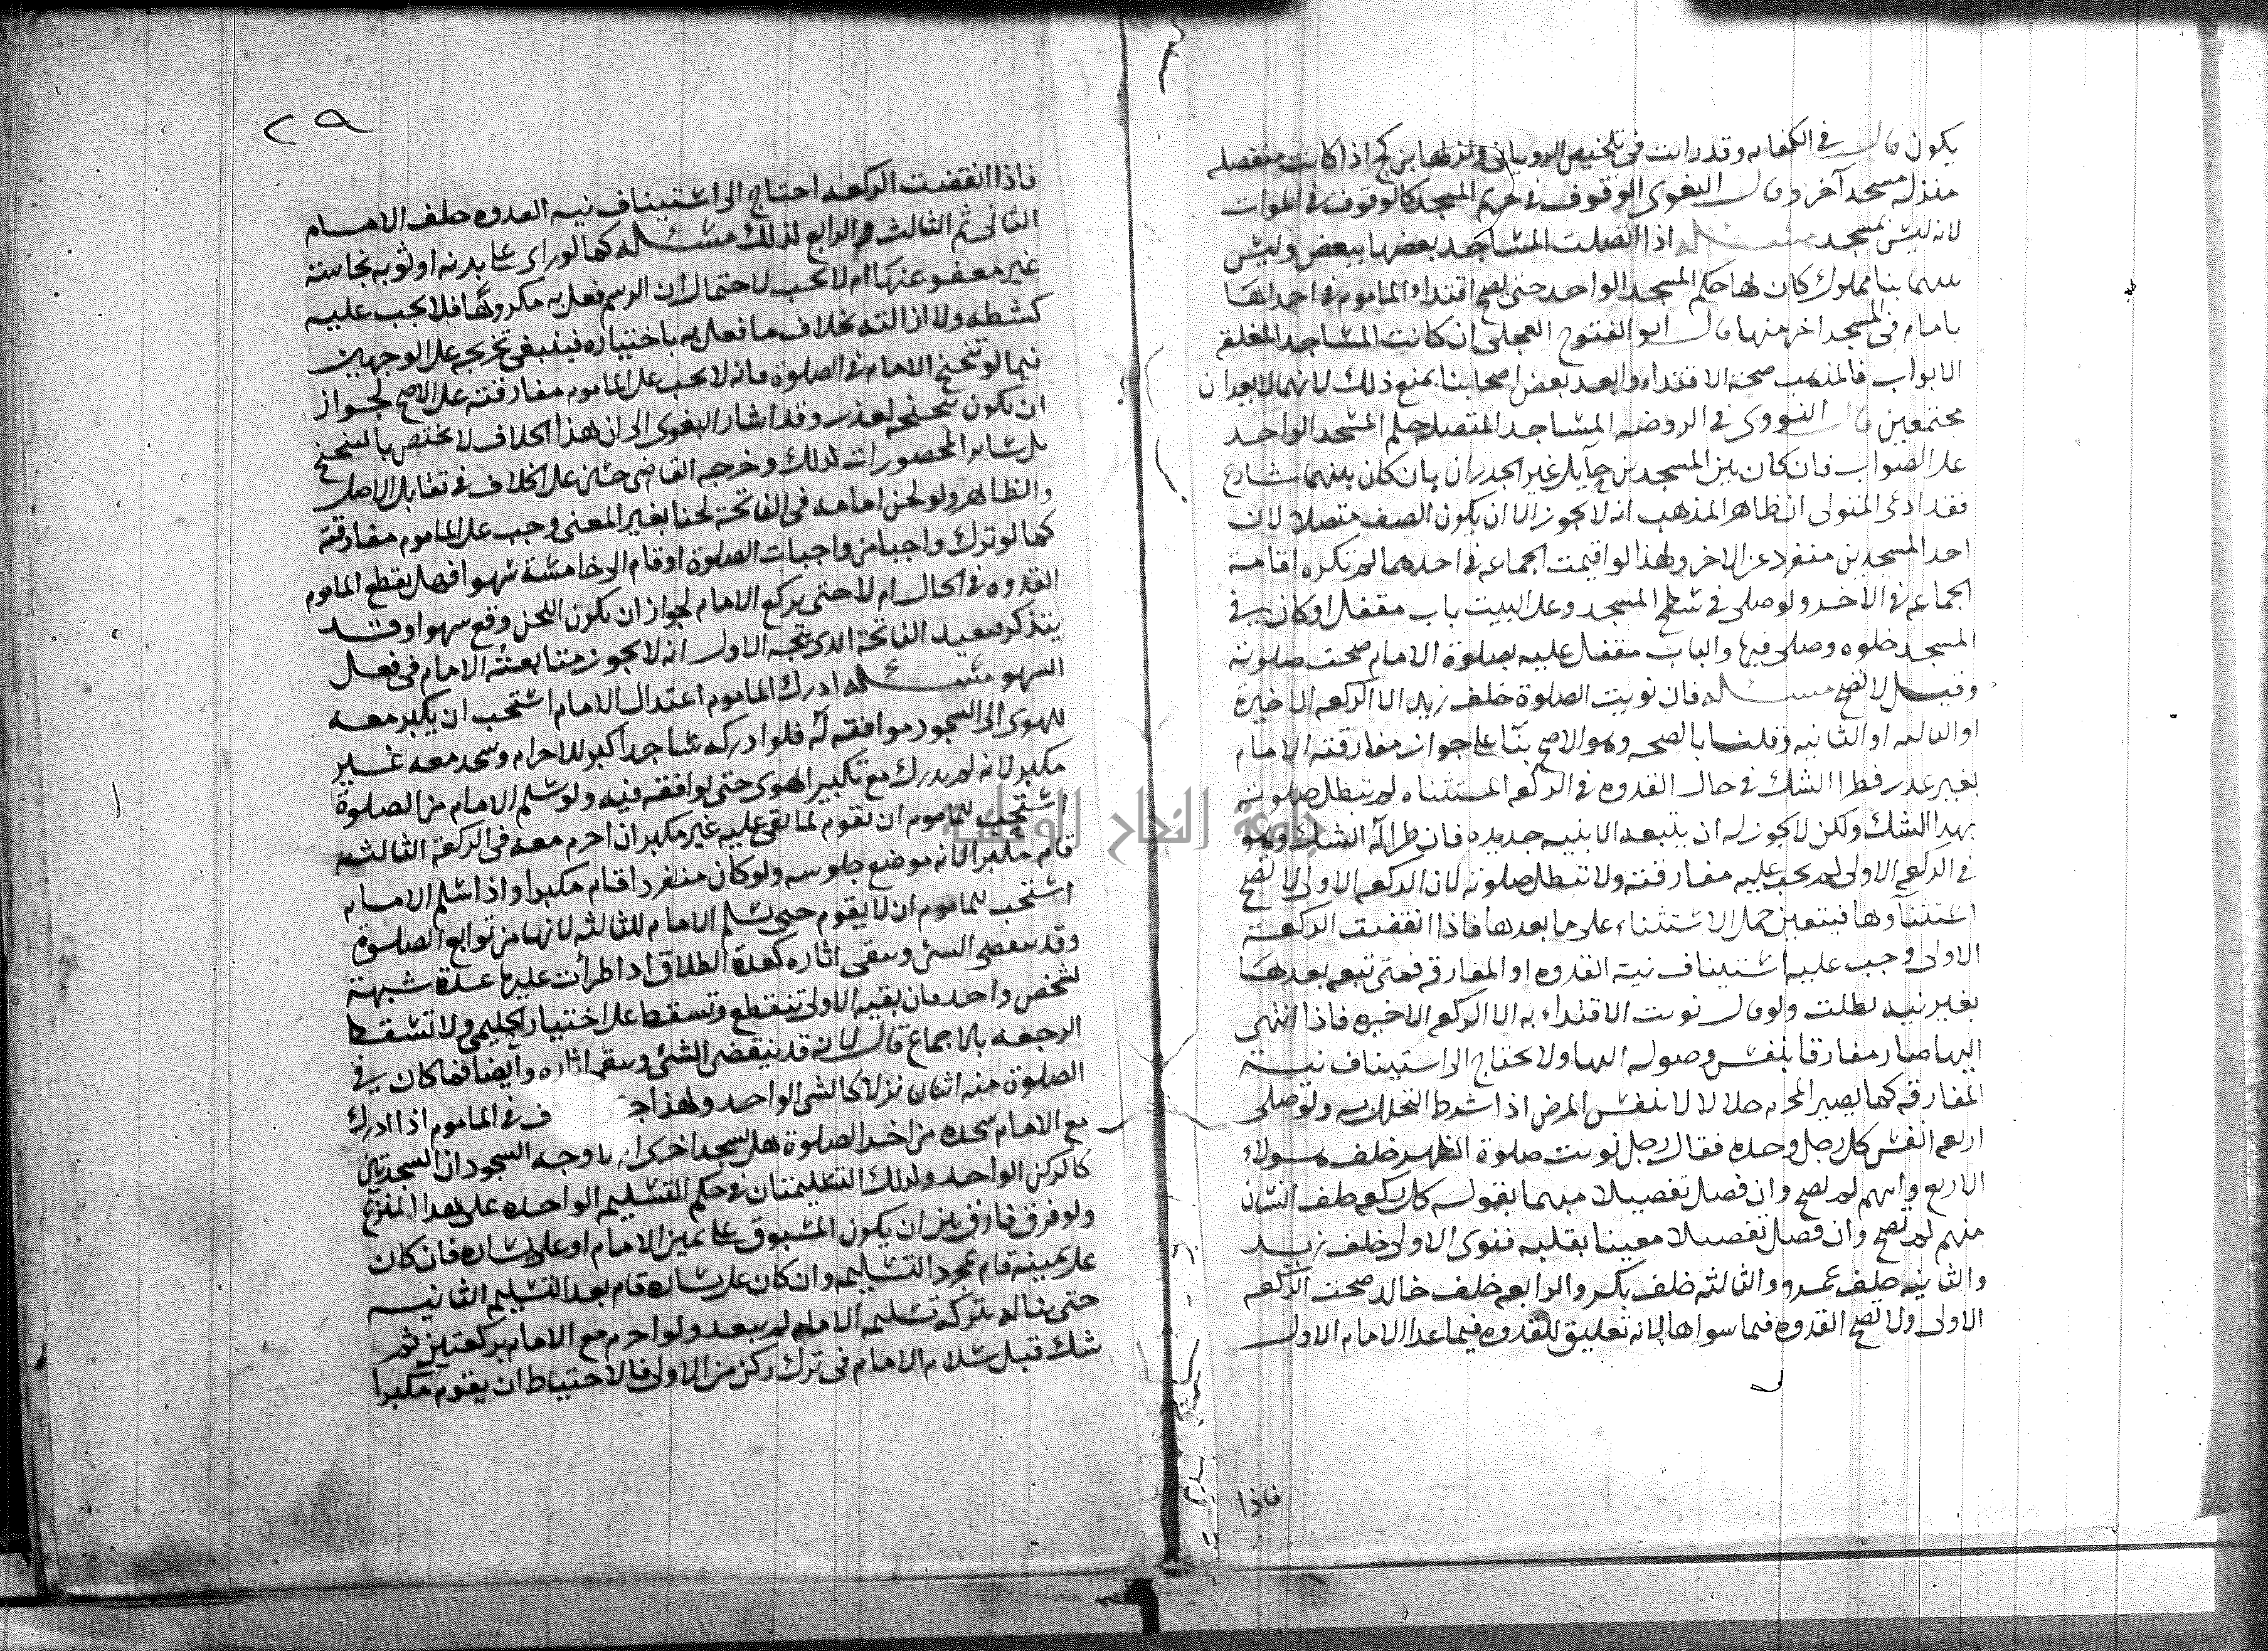 يكون قال في الكفايه وقد رايت في تلخيص الروياني ونزلها بن كج اذا كانت منفصله
منزله مسجد آخر وقال البغوى الوقوف في حريم المسجد كالوقوف في الموات
لانه ليس بمسجد مسئله اذا اتصلت المساجد بعضها ببعض وليس
بينهما بنا مملوك كان لها حكم المسجد الواحد حتى يصح اقتداء الماموم في احداها
بامام في المسجد اخر منها قال ابو الفتوح العجلى ان كانت المساجد المغلقه
الابواب فالمذهب صحة الاقتداء وابعد بعض اصحابنا بمنع ذلك لانهما لا يعدان
مجتمعين قال النووى في الروضه المساجد المتصله حكم المسجد الواحد
على الصواب فان كان بين المسجدين حآيل غير الجدران بان كان بينهما شارع
فقد ادعى المتولى ان ظاهر المذهب انه لا يجوز الا ان يكون الصف متصلا لان
احد المسجدين منفرد عن الاخر ولهذا لو اقيمت الجماعه في احدهما لم تكره اقامة
الجماعه في الاخر ولو صلى في سطح المسجد وعلى البيت باب مقفل او كان في
المسجد خلوه وصلى فيها والباب مقفل عليه بصلوة الامام صحت صلوته
وقيل لا تصح مسئله فان نويت الصلوة خلف زيد الا الركعه الاخيرة
او الثالثه او الثانيه وقلنا بالصحه وهو الاصح بنآ على جواز مفارقته الامام
بغير عذر فطرا الشك في حال القدوه في الركعه المستثناه لم تبطل صلوته
بهذا الشك ولكن لا يجوز له ان يتبعه الا بنيه جديده فان طرا له الشك وهو
في الركعه الاولى لم يجب عليه مفارقته ولا تبطل صلوته لان الركعه الاولى لا تصح
استثنآوها فيتعين حمل الاستثناء على ما بعدها فاذا انقضت الركعة
الاولى وجب عليه استيناف نية القدوه او المفارقه فمتى تبعه بعدها
بغير نيه بطلت ولو قال نويت الاقتداء به الا الركعه الاخيره فاذا انتهى
اليها صار مفارقا بنفس وصوله اليها ولا يحتاج الى استيناف نية
المفارقه كما يصير المحرم حلالا بنفس المرض اذا شرط التحلل به ولو صلى
اربعه انفس كل رجل وحده فقال رجل نويت صلوة الظهر خلف هولاء
الاربع وابهم لم تصح وان فصل تفصيلا مبهما بقوله كل ركعه خلف انسان
منهم لم تصح وان فصل تفصيلا معينا بقلبه فنوى الاولى خلف زيد
والثانيه خلف عمرو والثالثه خلف بكر والرابعه خلف خالد صحت الركعه
الاولى ولا تصح القدوه فيما سواها لانه تعليق للقدوه فيما عدا الامام الاول
فاذا
٢٩
فاذا انقضت الركعه احتاج الى استيناف نيه القدوه خلف الامام
الثانى ثم الثالث والرابع لذلك مسئله كما لو راى على بدنه او ثوبه نجاسة
غير معفو عنها ام لا يجب لاحتمال ان الرسم فعل به مكروها فلا يجب عليه
كشطه ولا ازالته بخلاف ما فعل به باختياره فينبغى تخريجه على الوجهين
فيما لو تنحنح الامام في الصلوة فانه لا يجب على الماموم مفارقته على الاصح لجواز
ان يكون تنحنحه لعذر وقد اشار البغوى الى ان هذا الخلاف لا يختص بالتنحنح
بل سائر المحصورات لذلك وخرجه القاضى حسين على الخلاف في تقابل الاصل
والظاهر ولو لحن امامه في الفاتحة لحنا يغير المعنى وجب على الماموم مفارقته
كما لو ترك واجبا من واجبات الصلوة او قام الى خامسة سهوا فهل يقطع الماموم
القدوه في الحال ام لا حتى يركع الامام لجواز ان يكون اللحن وقع سهوا وقد
يتذكر فيعيد الفاتحة الذى يتجه الاول انه لا يجوز متابعته الامام في فعل
السهو مسئله ادرك الماموم اعتدال الامام استحب ان يكبر معه
للهوى الى السجود موافقة له فلو ادركه ساجدا كبر للاحرام وسجد معه غير
مكبر لانه لم يدرك مع تكبير الهوى حتى يوافقه فيه ولو سلم الامام من الصلوة
استحب للماموم ان يقوم لما بقى عليه غير مكبر ان احرم معه في الركعة الثالثه
قام مكبرا لانه موضع جلوسه ولو كان منفردا قام مكبرا واذا سلم الامام
استحب للماموم ان لا يقوم حتى يسلم الامام للثالثه لانها من توابع الصلوة
وقد ينقضى الشئ ويبقى اثاره كعدة الطلاق اذا طرأت عليها عدة شبهة
لشخص واحد فان بقيه الاولى تنقطع وتسقط على اختيار الحليمى ولا تسقط
الرجعه بالاجماع قال لانه قد ينقضى الشئ ويبقى اثاره وايضا فما كان في
الصلوة منه اثنان نزلا كالشى الواحد ولهذا ف في الماموم اذا ادرك
مع الامام سجده من اخر الصلوة هل يسجد اخرى ام لا وجه السجود ان السجدتين
كالركن الواحد ولذلك التسليمتان في حكم التسليم الواحده على هذا المنزع
ولو فرق فارق بين ان يكون المسبوق على يمين الامام او على يساره فان كان
على يمينه قام بمجرد التسليمه وان كان على يساره قام بعد التسليم الثانيه
حتى يناله بركه تسليمه الامام لم يبعد ولو احرم مع الامام بركعتين ثم
شك قبل سلام الامام في ترك ركن من الاولى فالاحتياط ان يقوم مكبرا